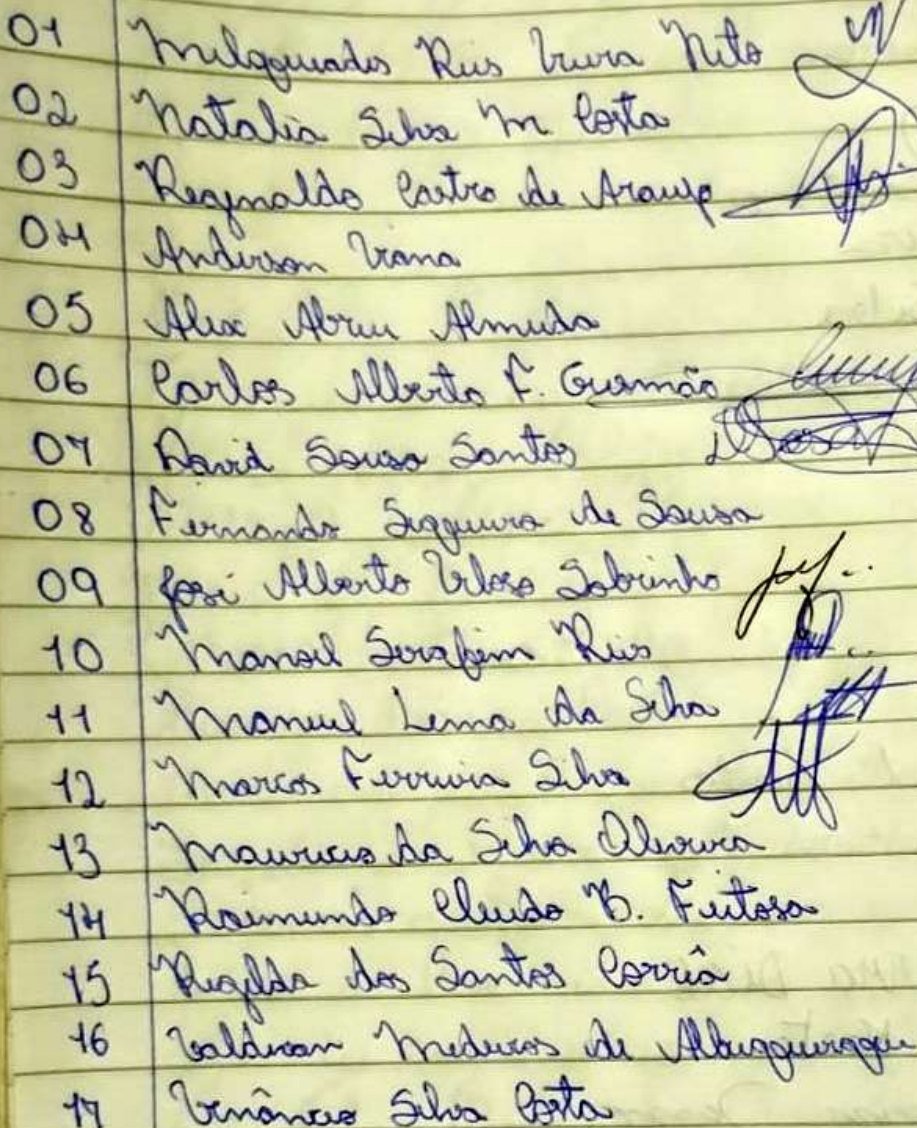 01 Milqquiades Reis Vieira Neto
02 Natalia Silva M Costa
03 Reginaldo Castro de Araujo
04 Anderson Viana
05 Alex Abreu Almeida
06 Carlos Alberto F. Gusmão
07 David Sousa Santos
08 Fernando Siqqueira de Sousa
09 José Alberto Veloso Sobrinho
10 Manoel Serafim Reis
11 Manuel Lima da Silva
12 Marcos Ferreira Silva
13 Mauricio da Silva Oliveira
14 Raimundo Cleudo B. Feitosa
15 Regilda dos Santos Corrêa
16 Valdivan Medeiros de Albuqquerqque
17 Venâncio Silva Costa